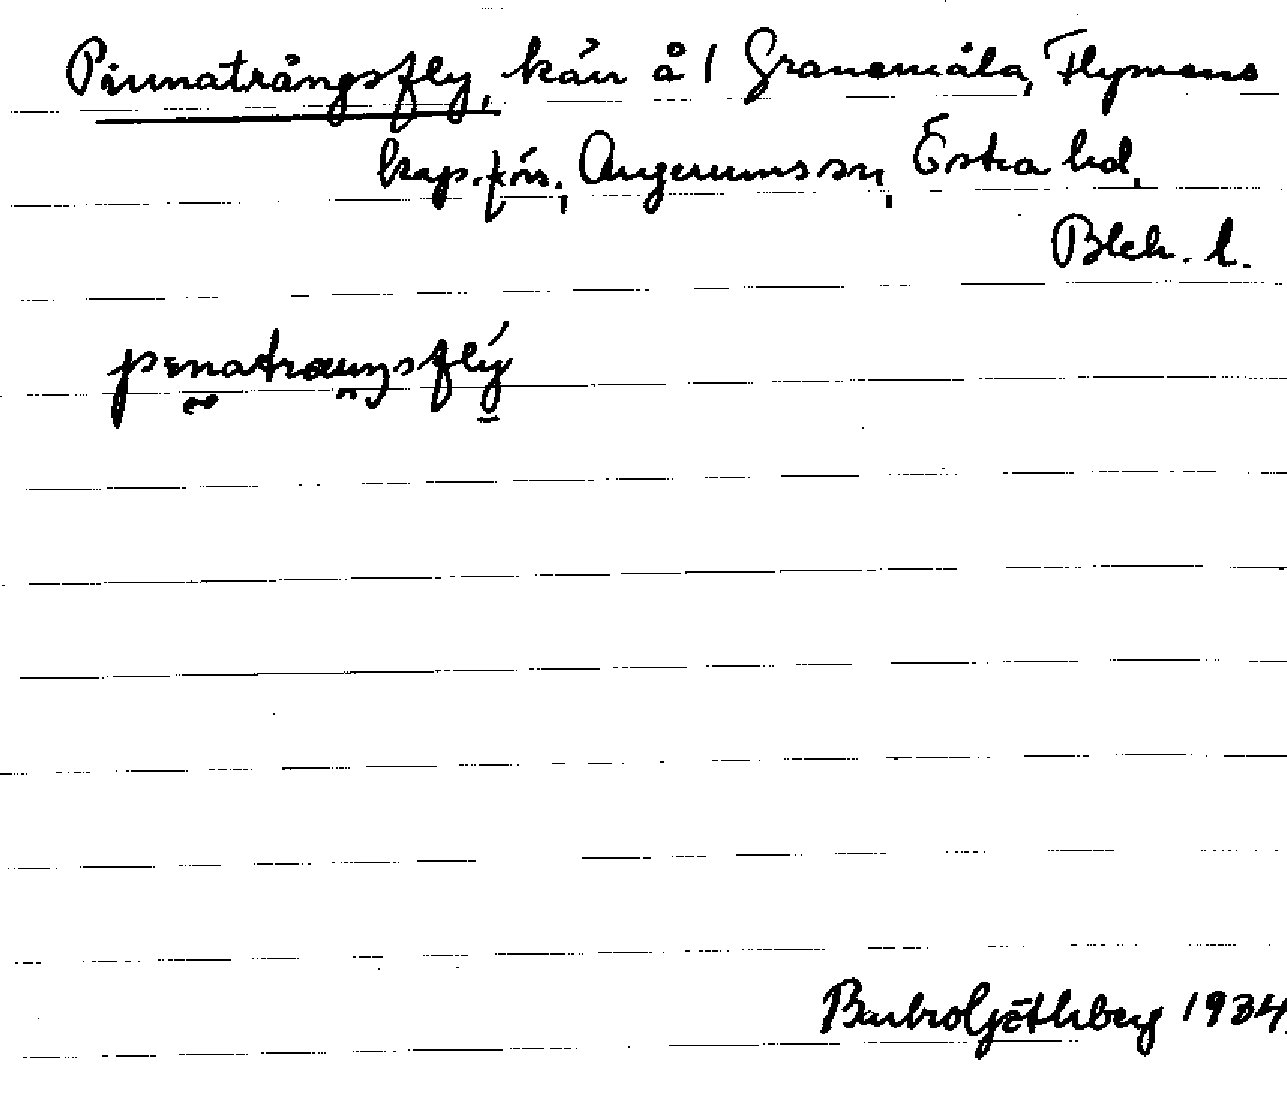 Pinnatrångsfly, kärr å 1 Granemåla, Flymens
kap.förs., Augerums sn, Östra hd,
Blek. l.
penatraŋsflý
Barbro Götlberg 1934.